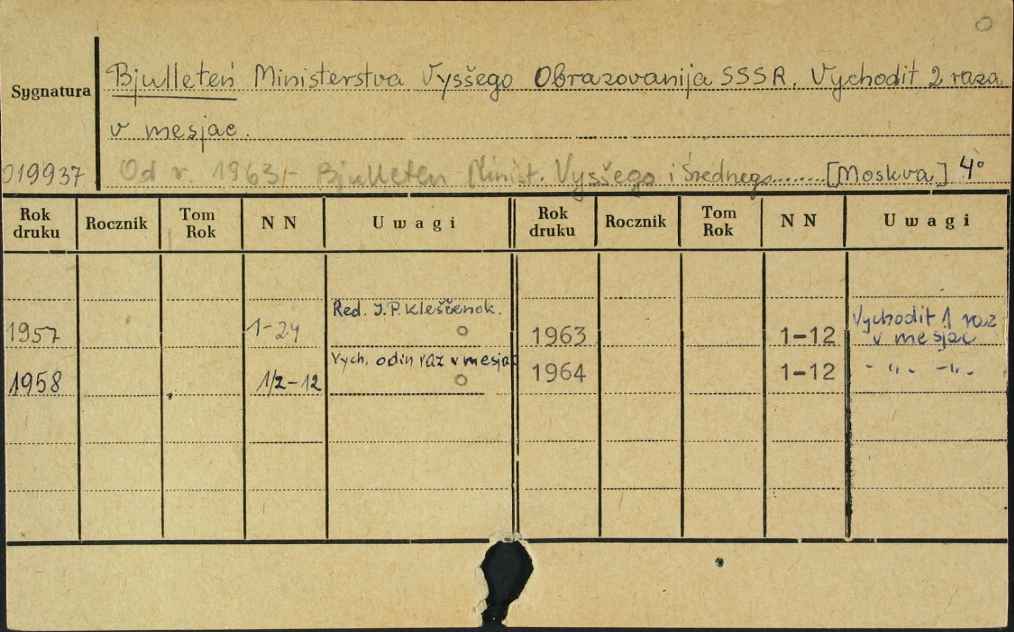 O
Bjulleteń Ministerstva Vysšego Obrazovanija SSSR. Vychodit 2 raza
Sygnatura
v mesjac.
019937 Od r. 1963/- Bjulleten Minist. Vysšego i Srednego....... [Moskva] 4°
Rok druku Rocznik Tom Rok NN Uwagi Rok druku Rocznik Tom Rok NN Uwagi
Red. I.P. Kleščenok. Vychodit 1 raz
1957 1-24 o 1963 1-12 v mesjac
Vych. odin raz v mesjac 1964 1-12 - " - - " -
1958 1/2-12 o